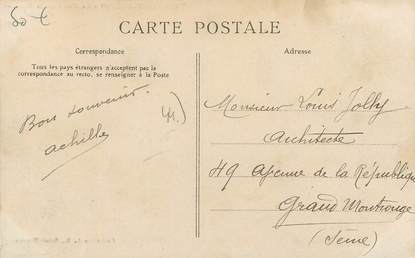 50 €
CARTE POSTALE
Correspondance
Tous les pays étrangers n'acceptent pas la
correspondance au recto, se renseigner à la Poste
Bon souvenir.
achille
Adresse
Monsieur Louis Jolly
Architecte
49 Avenue de la République
Grand Montrouge
(Seine)